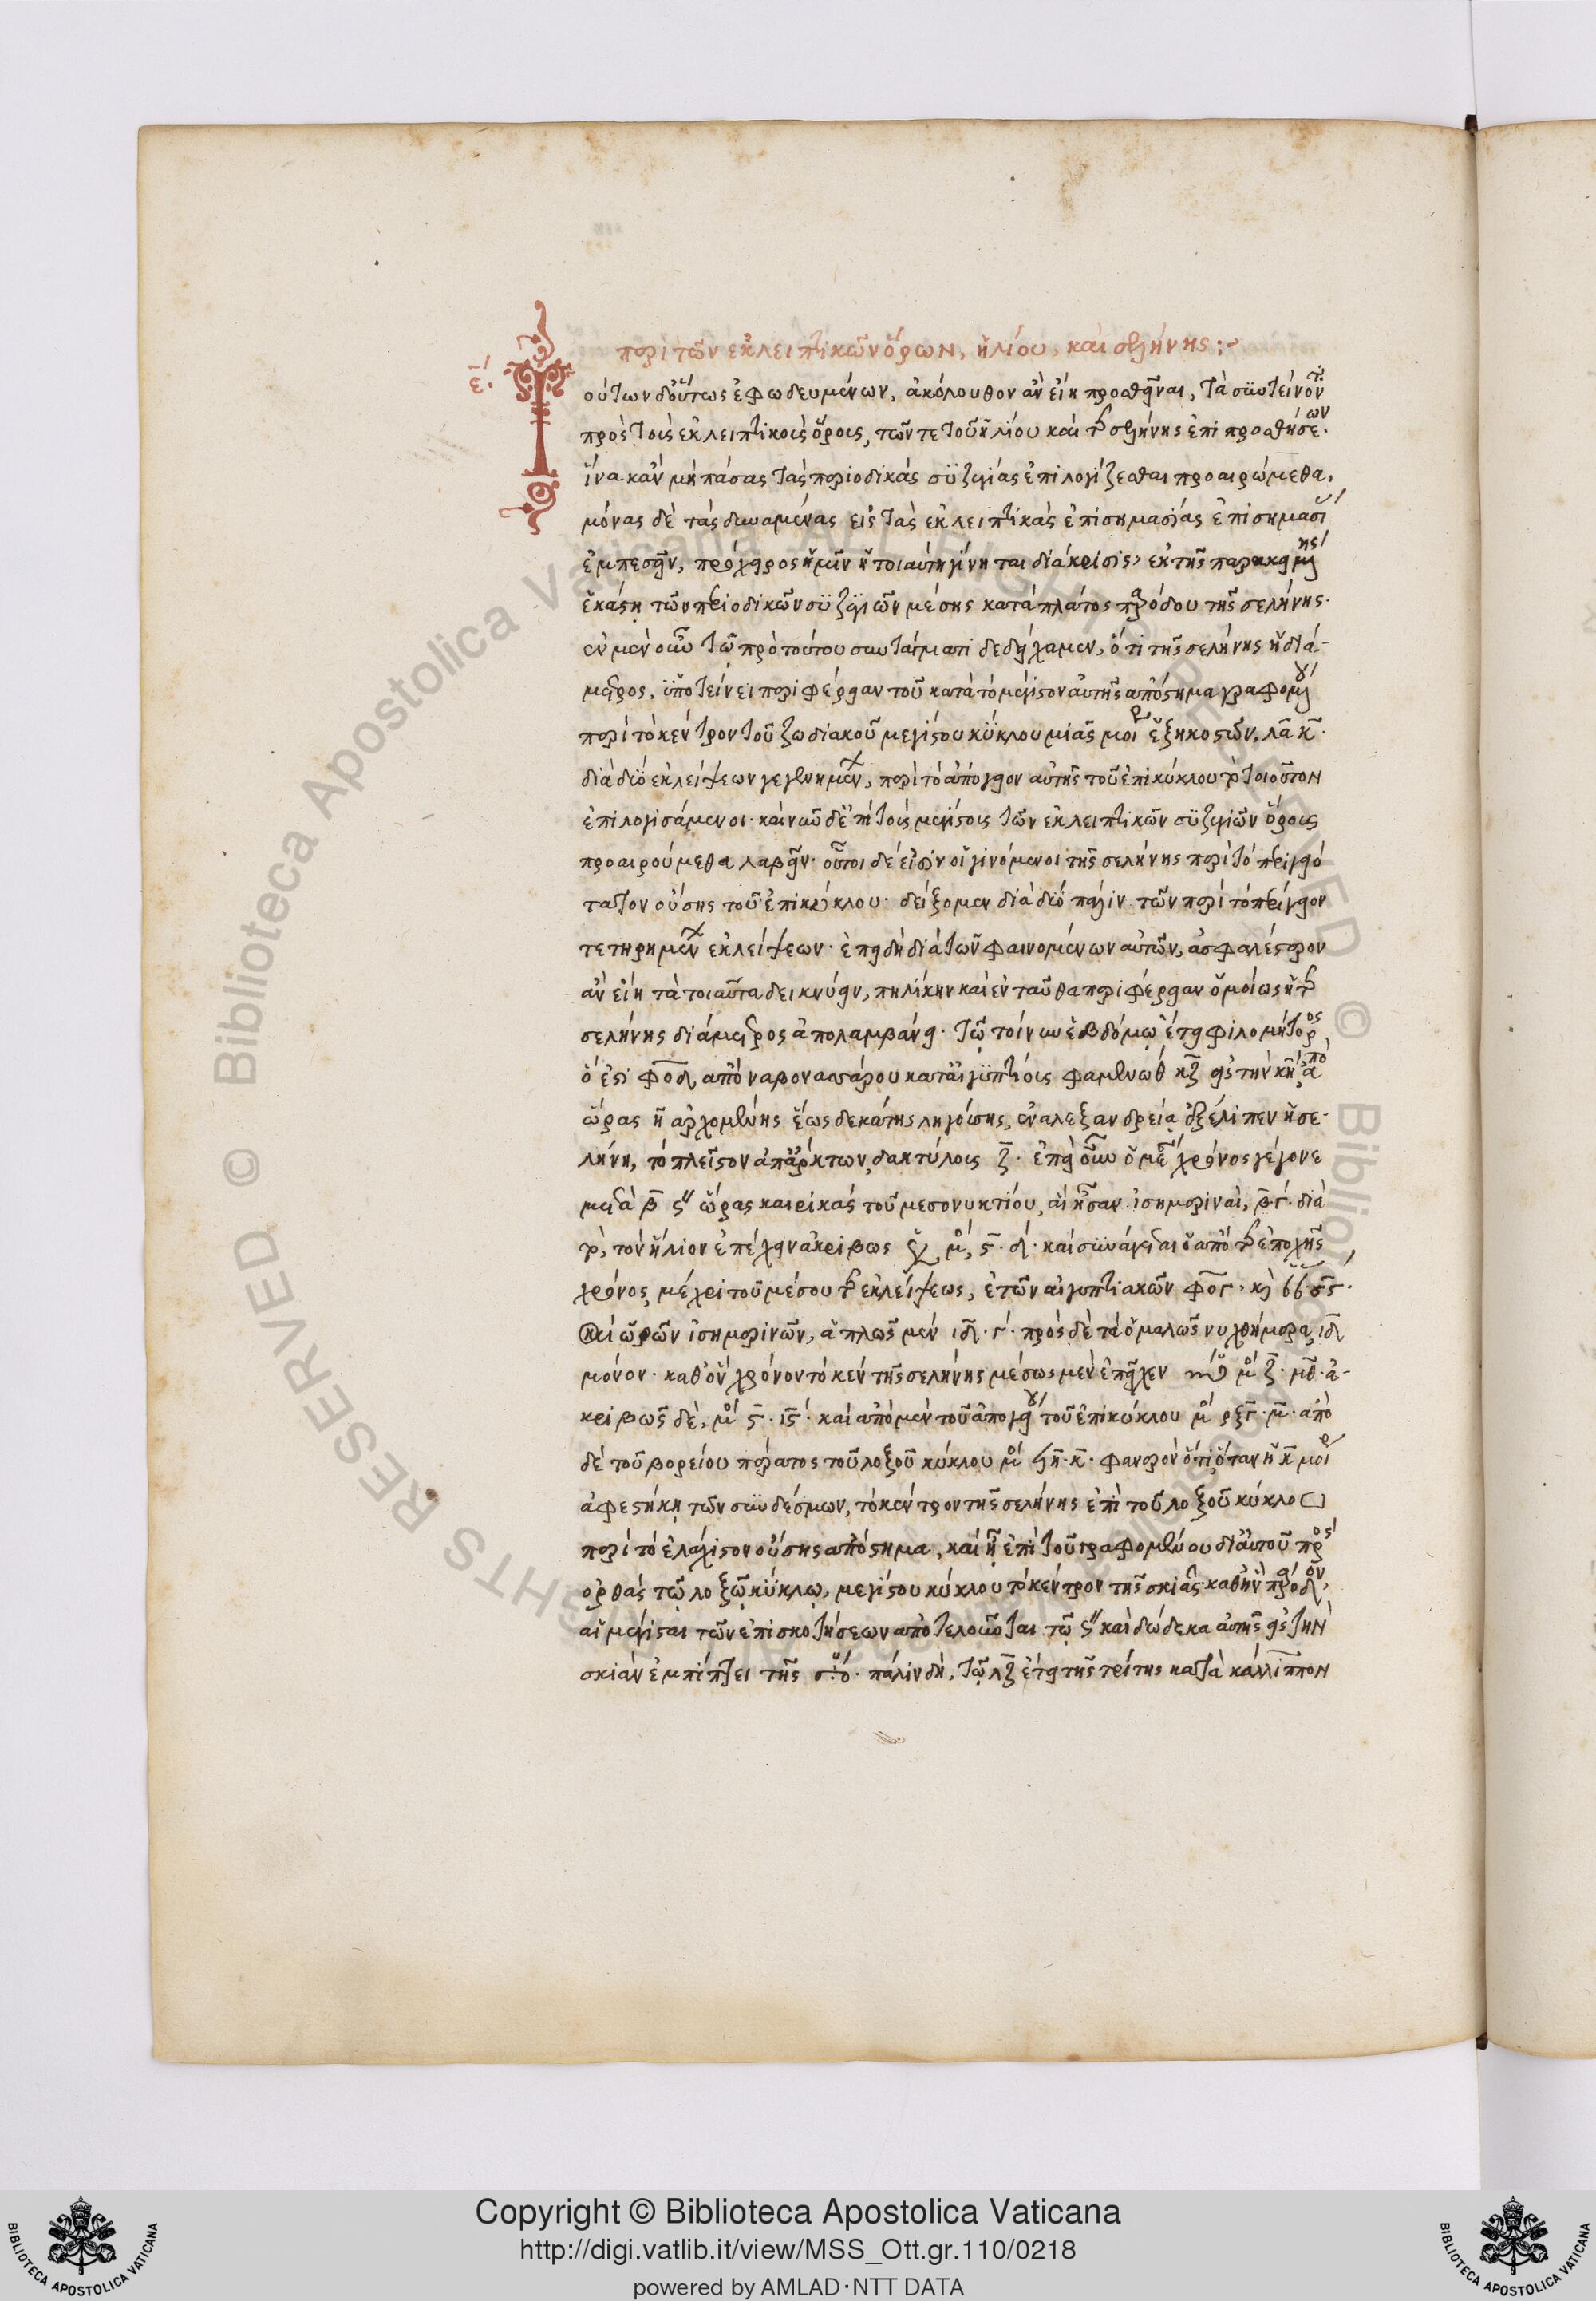 περὶ τῶν ἐκλειπτικῶν ὅρων, ἡλίου, καὶ σελήνης :~
ε΄.
Τούτων δ' οὕτως ἐφωδευμένων, ἀκόλουθον ἂν εἴη προσθεῖναι, τὰ συντείνοντα
πρὸς τοῖς ἐκλειπτικοῖς ὅροις, τῶν τε τοῦ ἡλίου καὶ τῆς σελήνης ἐπιπροσθήσεων.
ἵνα κἂν μὴ πάσας τὰς περιοδικὰς συζυγίας ἐπιλογίζεσθαι προαιρώμεθα,
μόνας δὲ τὰς δυναμένας εἰς τὰς ἐκλειπτικὰς ἐπισημασίας ἐπισημασί
ἐμπεσεῖν, πρόχειρος ἡμῖν ἡ τοιαύτη γίνηται διάκρισις, ἐκ τῆς παρακειμένης
ἑκάστῃ τῶν περιοδικῶν συζυγιῶν μέσης κατὰ πλάτος παρόδου τῆς σελήνης.
ἐν μὲν οὖν τῷ πρὸ τούτου συντάγματι δεδείχαμεν, ὅτι τῆς σελήνης ἡ διά-
μετρος, ὑποτείνει περιφέρειαν τοῦ κατὰ τὸ μέγιστον αὐτῆς ἀπόστημα γραφομένου
περὶ τὸ κέντρον τοῦ ζωδιακοῦ μεγίστου κύκλου μιᾶς μοίρ ἑξηκοστῶν, λα κ.
διὰ δύο ἐκλείψεων γεγενημένων, περὶ τὸ ἀπόγειον αὐτῆς τοῦ ἐπικύκλου τὸ τοιοῦτον
ἐπιλογισάμενοι. καὶ νῦν δὲ ἐπὶ τοῖς μεγίστοις τῶν ἐκλειπτικῶν συζυγιῶν ὅροις
προαιρούμεθα λαβεῖν. οὗτοι δέ εἰσιν οἱ γινόμενοι τῆς σελήνης περὶ τὸ περιγειό
τατον οὔσης τοῦ ἐπικύκλου. δείξομεν διὰ δύο πάλιν τῶν περὶ τὸ περίγειον
τετηρημένων ἐκλείψεων. ἐπειδὴ διὰ τῶν φαινομένων αὐτῶν, ἀσφαλέστερον
ἂν εἴη τὰ τοιαῦτα δεικνύειν, πηλίκην καὶ ἐνταῦθα περιφέρειαν ὁμοίως ἡ τῆς
σελήνης διάμετρος ἀπολαμβάνει. τῷ τοίνυν ἑβδόμῳ ἔτει φιλομήτορος
ὅ ἐστι φοδ ἀπὸ ναβονασσάρου κατ' αἰγυπτίοις φαμενὼθ κζ εἰς τὴν κη ἀπὸ
ὥρας η ἀρχομένης ἕως δεκάτης ληγούσης, ἐν ἀλεξανδρείᾳ ἐξέλιπεν ἡ σε-
λήνη, τὸ πλεῖστον ἀπ' ἄρκτων δακτύλοις ζ. ἐπεὶ οὖν ὁ μέσος χρόνος γέγονε
μετὰ β ς" ὥρας καιρικὰς τοῦ μεσονυκτίου, αἳ ἦσαν ἰσημεριναί, β γ. διὰ
τὸ, τὸν ἥλιον ἐπέχειν ἀκριβῶς ♉ μο, ς. δ. καὶ συνάγεται ὁ ἀπὸ τῆς ἐποχῆς
χρόνος μέχρι τοῦ μέσου τῆς ἐκλείψεως, ἐτῶν αἰγυπτιακῶν φογ, καὶ 66 σς.
καὶ ὡρῶν ἰσημερινῶν, ἁπλῶς μὲν ιδ. γ. πρὸς δὲ τὰ ὁμαλῶς νυχθήμερα, ιδ
μόνον. καθ' ὃν χρόνον τὸ κέν τῆς σελήνης μέσως μὲν ἐπεῖχεν ♏ μο ζ. μθ. ἀ-
κριβῶς δὲ, μο ς. ις. καὶ ἀπὸ μὲν τοῦ ἀπογείου τοῦ ἐπικύκλου μο ρξγ. μ. ἀπὸ
δὲ τοῦ βορείου πέρατος τοῦ λοξοῦ κύκλου μο ϟη. κ. φανερὸν ὅτι, ὅταν η κ μοίρ
ἀφεστήκῃ τῶν συνδέσμων, τὸ κέντρον τῆς σελήνης ἐπὶ τοῦ λοξοῦ κύκλου
περὶ τὸ ἐλάχιστον οὔσης ἀπόστημα, καὶ ᾖ ἐπὶ τοῦ γραφομένου δι' αὐτοῦ πρὸς
ὀρθὰς τῷ λοξῷ κύκλῳ, μεγίστου κύκλου τὸ κέντρον τῆς σκιᾶς καθ' ἣν πάροδον,
αἱ μέγισται τῶν ἐπισκοτήσεων ἀποτελοῦνται τῷ ς" καὶ δώδεκα αὐτῆς εἰς τὴν
σκιὰν ἐμπίπτει τῆς πάλιν δὴ, τῷ λζ ἔτει τῆς τρίτης κατὰ κάλλιππον
Copyright © Biblioteca Apostolica Vaticana
http://digi.vatlib.it/view/MSS_Ott.gr.110/0218
powered by AMLAD·NTT DATA
BIBLIOTECA APOSTOLICA VATICANA
BIBLIOTECA APOSTOLICA VATICANA